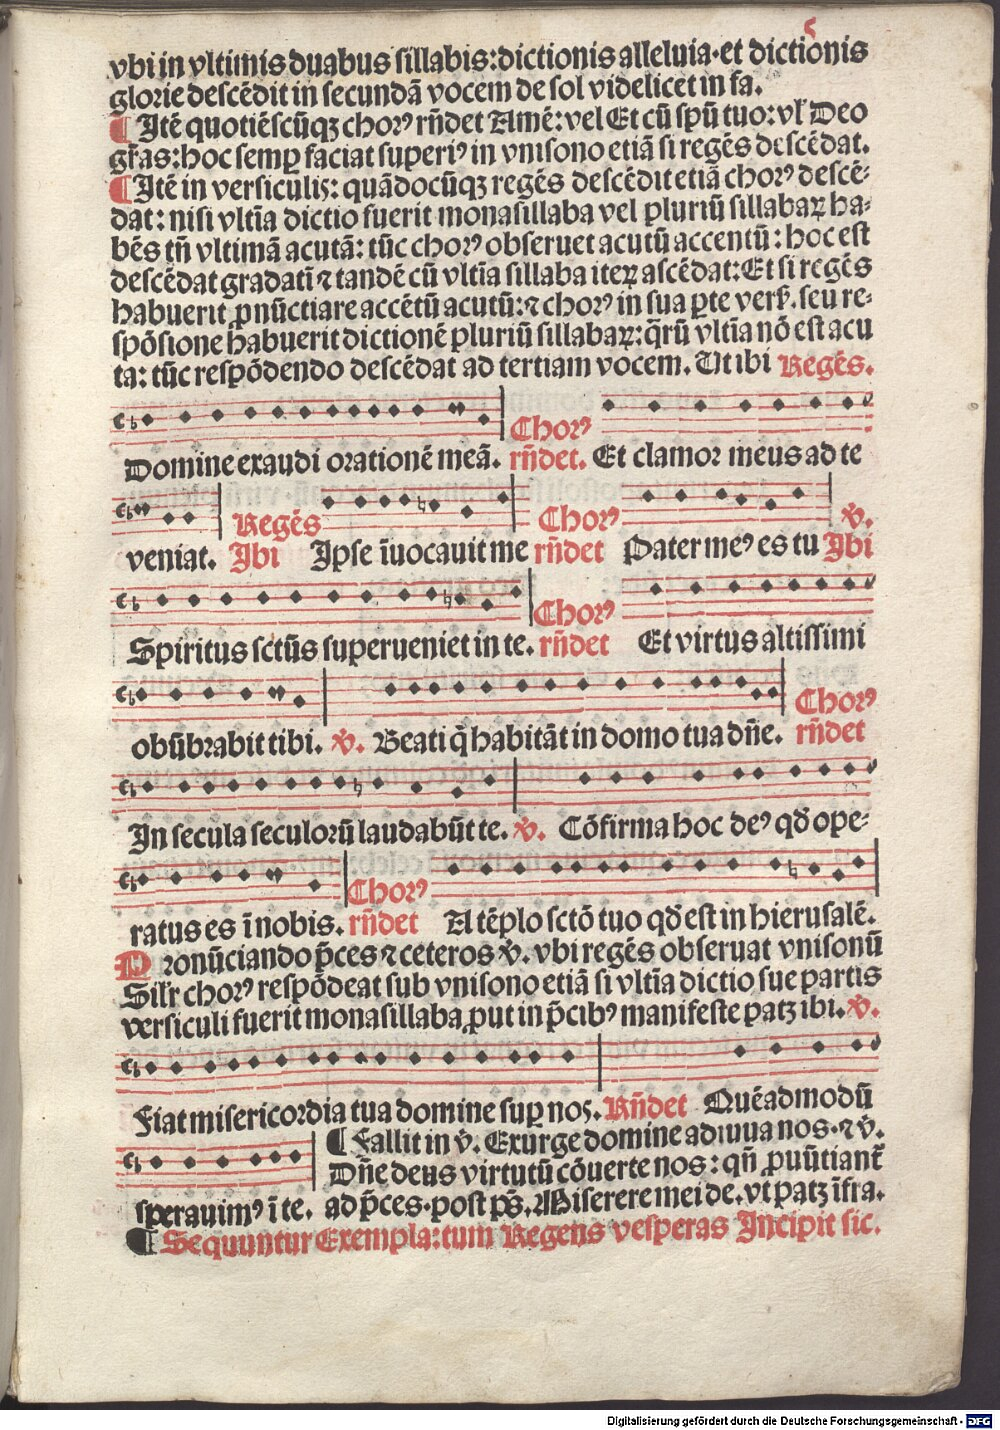 5
vbi in vltimis duabus sillabis: dictionis alleluia. et dictionis
glorie descēdit in secundā vocem de sol videlicet in fa.
¶ Itē quotiēscūqꝫ choꝰ rñdet Amē: vel Et cū spū tuo: vl' Deo
gr̄as: hoc semꝑ faciat superiꝰ in vnisono etiā si regēs descēdat.
¶ Itē in versiculis: quādocūqꝫ regēs descēdit etiā chorꝰ descē-
dat: nisi vltīa dictio fuerit monasillaba vel pluriū sillabaꝝ ha-
bēs tñ vltimā acutā: tūc chorꝰ obseruet acutū accentū: hoc est
descēdat gradatī ⁊ tandē cū vltīa sillaba iteꝝ ascēdat: Et si regēs
habuerit ꝓnūctiare accētū acutū: ⁊ chorꝰ in sua ꝑte verẜ. seu re-
spōsione habuerit dictionē pluriū sillabaꝝ: q̄rū vltīa nō est acu
ta: tūc respōdendo descēdat ad tertiam vocem. Ut ibi Regēs.
Domine exaudi orationē meā. Chorꝰ rñdet. Et clamor meus ad te
veniat. Regēs Ibi Ipse īuocauit me Chorꝰ rñdet Pater meꝰ es tu ℣. Ibi
Spiritus sctūs superueniet in te. Chorꝰ rñdet Et virtus altissimi
obūbrabit tibi. ℣. Beati q̄ habitāt in domo tua dñe. Chorꝰ rñdet
In secula seculorū laudabūt te. ℣. Cōfirma hoc deꝰ qd̄ ope-
ratus es ī nobis. Chorꝰ rñdet A tēplo sctō tuo qd̄ est in hierusalē.
Pronūciando p̄ces ⁊ ceteros ℣. vbi regēs obseruat vnisonū
Sil'r chorꝰ respōdeat sub vnisono etiā si vltīa dictio sue partis
versiculi fuerit monasillaba, put in p̄cibꝰ manifeste patꝫ ibi. ℣.
Fiat misericordia tua domine suꝑ nos. Rñdet Quēadmodū
sperauimꝰ ī te.
¶ Fallit in ℣. Exurge domine adiuua nos. ⁊ ℣.
Dñe deus virtutū cōuerte nos: qñ ꝓnūtiant̄
ad p̄ces. post ps̄. Miserere mei de. vt patꝫ īfra.
¶ Sequuntur Exempla: tum Regens vesperas Incipit sic.
Digitalisierung gefördert durch die Deutsche Forschungsgemeinschaft - DFG